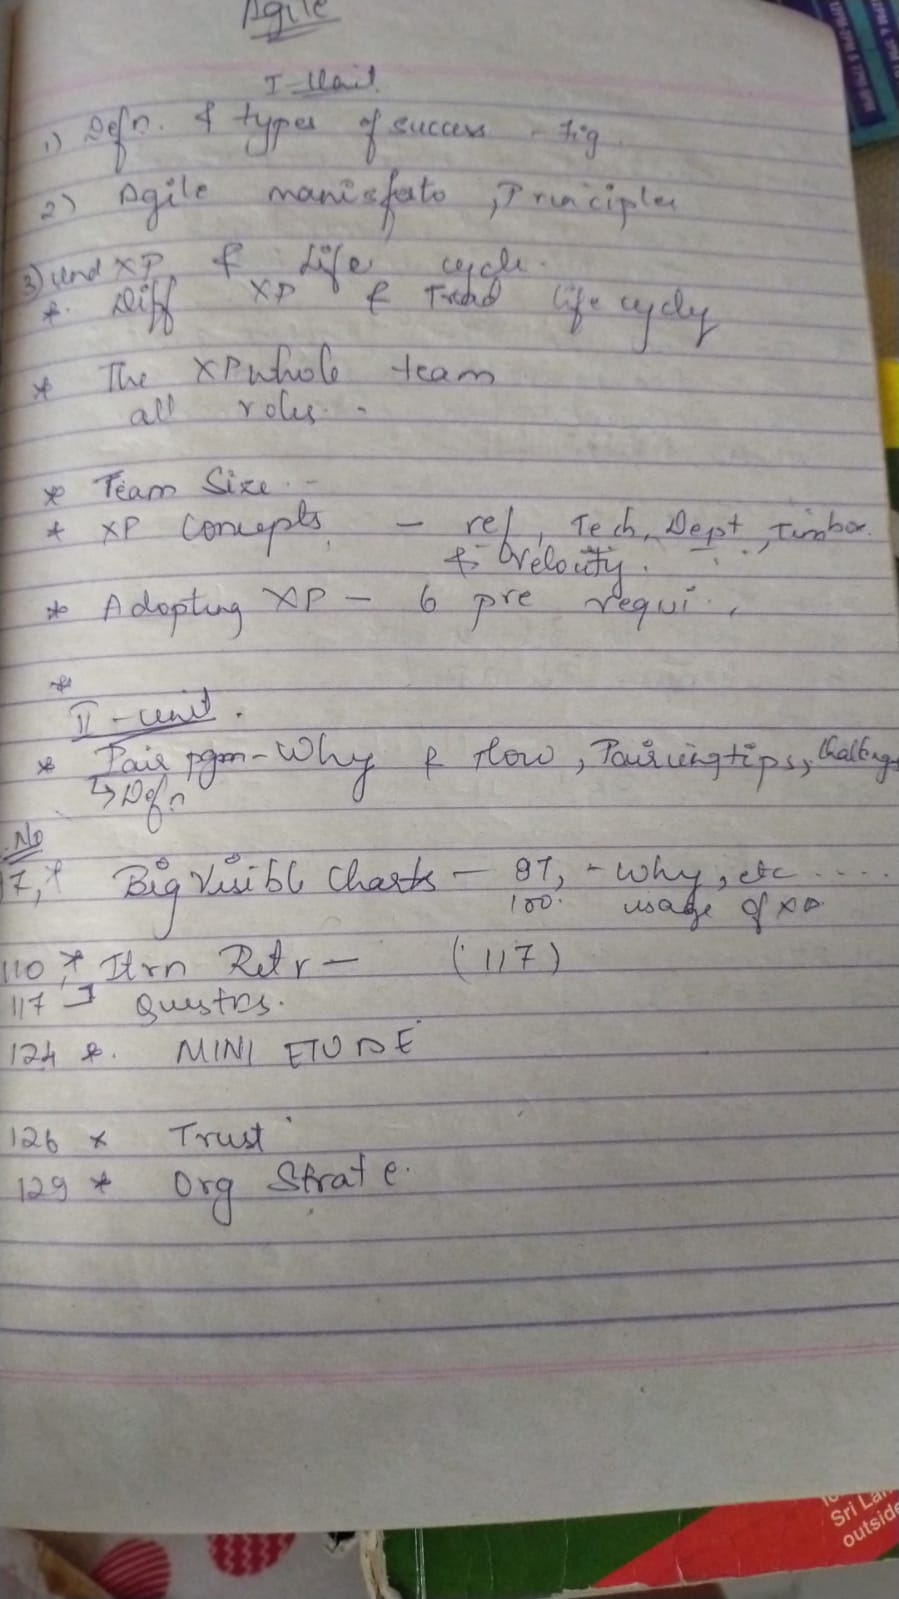 Agile
I-Unit
1) Defn. & types of success - fig.
2) Agile manisfesto, Principles
3) Und XP & Life cycle.
*. Diff XP & Trad life cycly
* The XP whole team
all roles. -
* Team Size. -
* XP Concepts - ref, Tech, Dept, Timbox.
& Velocity.
* Adopting XP - 6 pre requi.,
*
II - unit.
* Pair pgm - Why & flow, Pairing tips, Challeng
↳ Defn
No
7, * Big Visible Charts - 97, - Why, etc ....
100. usage of XP
110, * Itrn Retr - (117)
117 Questns.
124 *. MINI ETUDE
126 * Trust
129 * Org Strate.
Sri Lan
outside